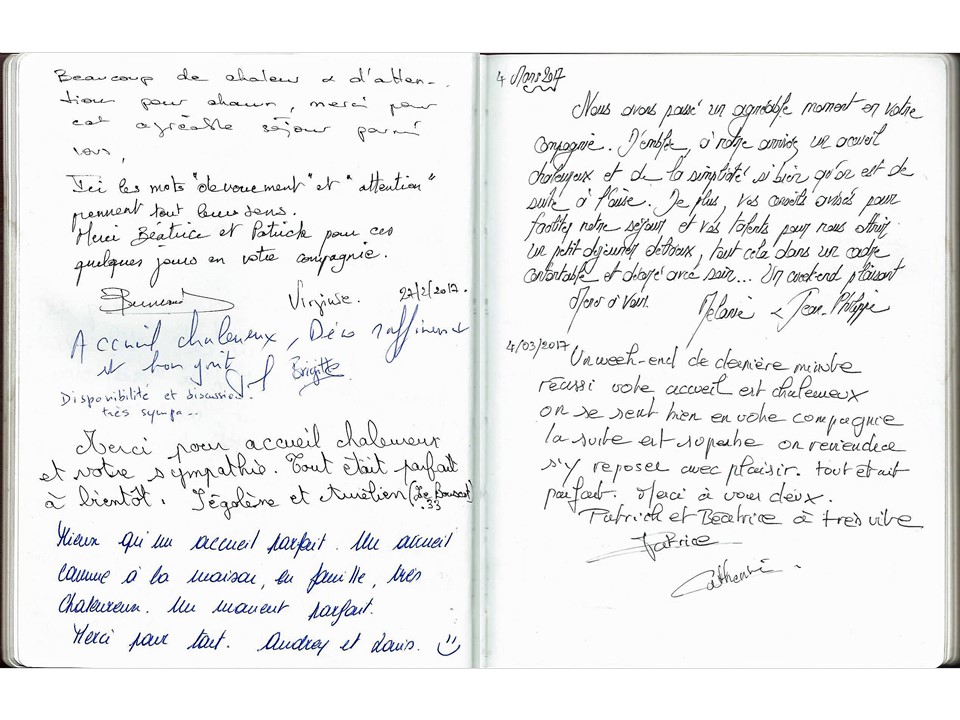 Beaucoup de chaleur & d'atten-
tion pour chacun, merci pour
cet agréable séjour parmi
vous,
Ici les mots "devouement" et "attention"
prennent tout leur sens.
Merci Béatrice et Patrick pour ces
quelques jours en votre compagnie.
Virginie. 27/2/2017.
Accueil chaleureux, Déco raffinement
et bon goût
Brigitte
Disponibilité et discussion
très sympa...
Merci pour accueil chaleureux
et votre sympathie. Tout était parfait
à bientôt. Ségolène et Aurélien (Le Bouscat)
.33
Mieux qu'un accueil parfait. Un accueil
comme à la maison, en famille, très
chaleureux. Un moment parfait.
Merci pour tout. Audrey et Louis.
4 Mars 2017
Nous avons passé un agréable moment en votre
compagnie. D'emblée, à notre arrivée un accueil
chaleureux et de la simplicité si bien qu'on est de
suite à l'aise. De plus, vos conseils avisés pour
faciliter notre séjour et vos talents pour nous offrir
un petit déjeuner délicieux, tout cela dans un cadre
confortable et décoré avec soin... Un week-end plaisant
Merci à vous. Mélanie & Jean-Philippe
4/03/2017
Un week-end de dernière minute
réussi votre accueil est chaleureux
on se sent bien en votre compagnie
la suite est superbe on reviendra
s'y reposer avec plaisir. tout était
parfait. Merci à vous deux.
Patrick et Béatrice à très vite
Fabrice
Catherine